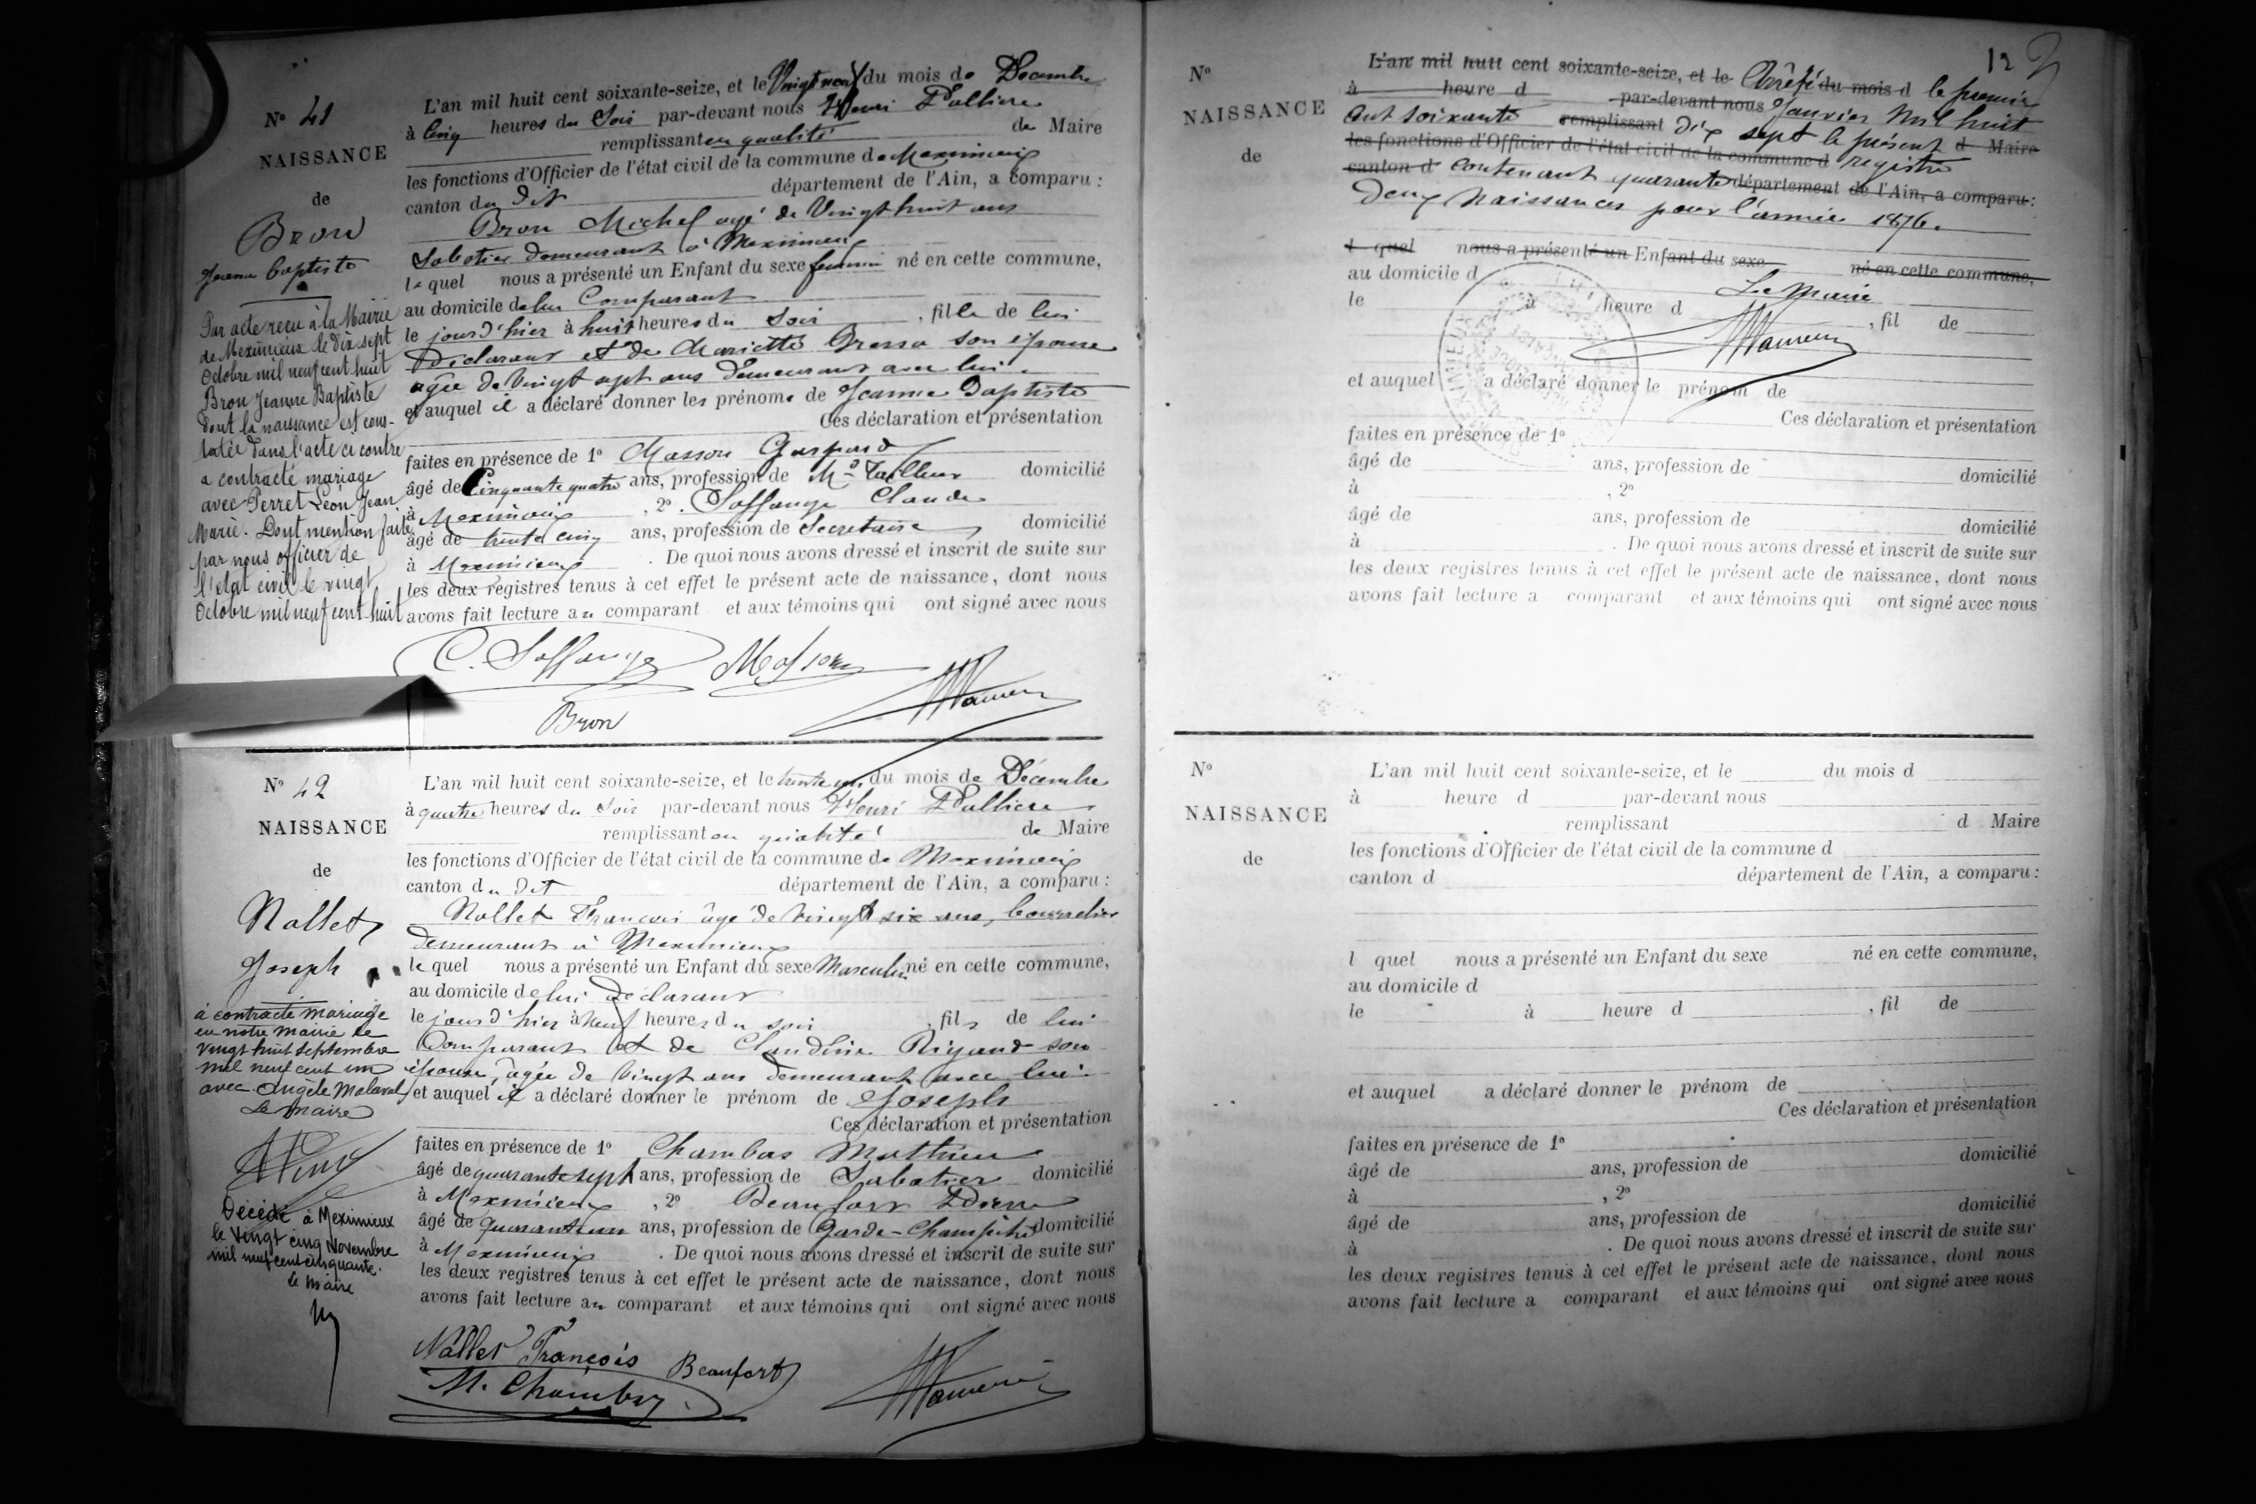 N° 41
NAISSANCE
de
Bron
Jeanne Baptiste
Par acte reçu à la Mairie
de Meximieux le dix sept
Octobre mil neuf cent huit
Bron Jeanne Baptiste
dont la naissance est cons-
tatée dans l'acte ci contre
a contracté mariage
avec Perret Léon Jean
Marie. Dont mention faite
par nous officier de
l'état civil le vingt
Octobre mil neuf cent huit
L'an mil huit cent soixante-seize, et le Vingt neuf du mois de Décembre
à Cinq heures du Soir par-devant nous Henri
remplissant en qualité de Maire
les fonctions d'Officier de l'état civil de la commune de Meximieux
canton du dit département de l'Ain, a comparu :
Bron Michel agé de Vingt huit ans
Sabotier demeurant à Meximieux
lequel nous a présenté un Enfant du sexe feminin né en cette commune,
au domicile de lui Comparant
le jour d'hier à huit heures du Soir , fille de lui
Déclarant et de Mariette son épouse
agée de Vingt sept ans demeurant avec lui.
et auquel il a déclaré donner les prénoms de Jeanne Baptiste
Ces déclaration et présentation
faites en présence de 1° Masson Gaspard
âgé de Cinquante quatre ans, profession de Md Tailleur domicilié
à Meximieux , 2° Soffange Claude
âgé de trente cinq ans, profession de Secretaire domicilié
à Meximieux . De quoi nous avons dressé et inscrit de suite sur
les deux registres tenus à cet effet le présent acte de naissance, dont nous
avons fait lecture au comparant et aux témoins qui ont signé avec nous
C. Soffange Masson
Bron
N° 42
NAISSANCE
de
Nallet
Joseph
à contracté mariage
en notre mairie le
vingt huit septembre
mil neuf cent un
avec Angèle Malaval
Le Maire
Décédé à Meximieux
le vingt cinq Novembre
mil neuf cent cinquante.
le Maire
L'an mil huit cent soixante-seize, et le trente un du mois de Décembre
à quatre heures du Soir par-devant nous Henri
remplissant en qualité de Maire
les fonctions d'Officier de l'état civil de la commune de Meximieux
canton du dit département de l'Ain, a comparu :
Nallet François âgé de Vingt six ans, bourrelier
demeurant à Meximieux
lequel nous a présenté un Enfant du sexe Masculin né en cette commune,
au domicile de lui Déclarant
le jour d'hier à Neuf heures du soir , fils de lui
Comparant et de Claudine Rigaud son
épouse, âgée de Vingt ans demeurant avec lui.
et auquel il a déclaré donner le prénom de Joseph
Ces déclaration et présentation
faites en présence de 1° Chambas Mathieu
âgé de quarante sept ans, profession de Sabotier domicilié
à Meximieux , 2° Beaufort Pierre
âgé de quarante un ans, profession de Garde-Champêtre domicilié
à Meximieux . De quoi nous avons dressé et inscrit de suite sur
les deux registres tenus à cet effet le présent acte de naissance, dont nous
avons fait lecture au comparant et aux témoins qui ont signé avec nous
Nallet François Beaufort
M. Chambas
12
N°
NAISSANCE
de
L'an mil huit cent soixante-seize, et le Arrêté du mois d le premier
à heure d par-devant nous Janvier Mil huit
cent soixante remplissant dix sept le présent d Maire
les fonctions d'Officier de l'état civil de la commune d registre
canton d contenant quarante département de l'Ain, a comparu :
deux Naissances pour l'année 1876.
l quel nous a présenté un Enfant du sexe né en cette commune,
au domicile d Le Maire
le à heure d , fil de
et auquel a déclaré donner le prénom de
Ces déclaration et présentation
faites en présence de 1°
âgé de ans, profession de domicilié
à , 2°
âgé de ans, profession de domicilié
à . De quoi nous avons dressé et inscrit de suite sur
les deux registres tenus à cet effet le présent acte de naissance, dont nous
avons fait lecture a comparant et aux témoins qui ont signé avec nous
N°
NAISSANCE
de
L'an mil huit cent soixante-seize, et le du mois d
à heure d par-devant nous
remplissant d Maire
les fonctions d'Officier de l'état civil de la commune d
canton d département de l'Ain, a comparu :
l quel nous a présenté un Enfant du sexe né en cette commune,
au domicile d
le à heure d , fil de
et auquel a déclaré donner le prénom de
Ces déclaration et présentation
faites en présence de 1°
âgé de ans, profession de domicilié
à , 2°
âgé de ans, profession de domicilié
à . De quoi nous avons dressé et inscrit de suite sur
les deux registres tenus à cet effet le présent acte de naissance, dont nous
avons fait lecture a comparant et aux témoins qui ont signé avec nous